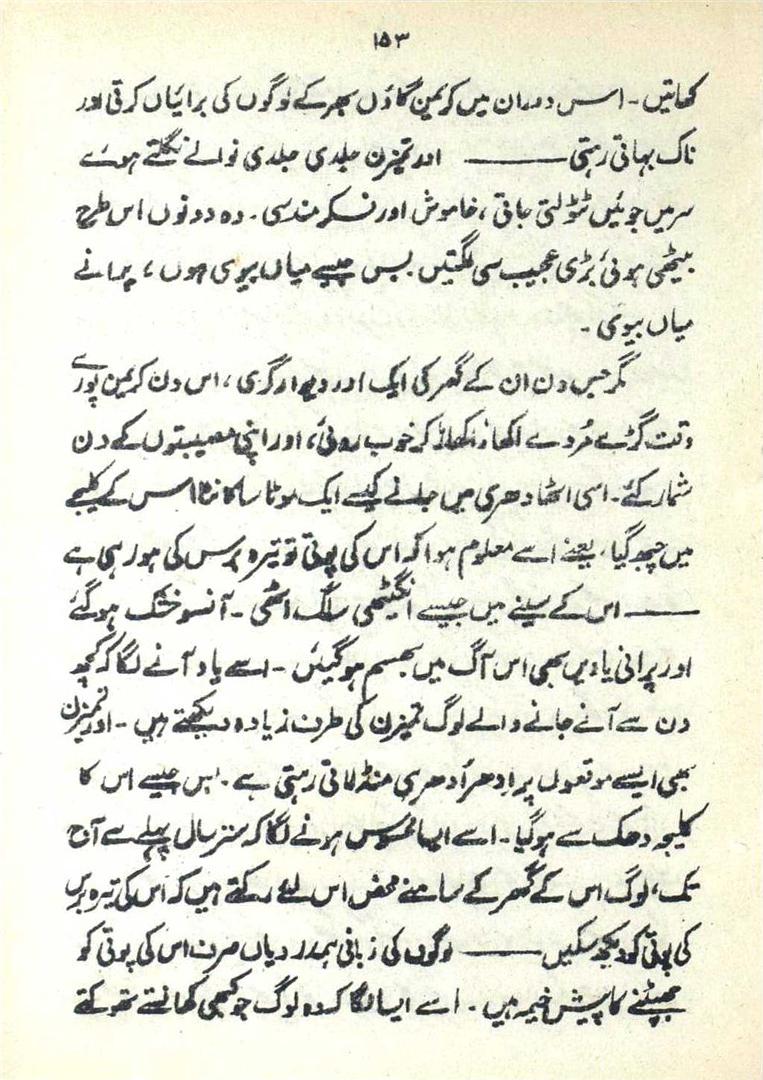 ۱۵۳
کھاتیں ۔ اس دوران میں کریمن گاؤں بھر کے لوگوں کی برائیاں کرتی اور
ناک بہاتی رہتی ——— اور تمیزن جلدی جلدی نوالے نگلتے ہوئے
سر میں جوئیں ٹٹولتی جاتی ، خاموش اور فکر مند سی ۔ وہ دونوں اس طرح
بیٹھی ہوئی بڑی عجیب سی لگتیں بس جیسے میاں بیوی ہوں ، پرانے
میاں بیوی ۔
مگر جس دن ان کے گھر کی ایک اور دیوار گری ، اس دن کریمن پورے
وقت گڑے مُردے اکھاڑ اکھاڑ کر خوب روئی ، اور اپنی مصیبتوں کے دن
شمار کئے ۔ اسی اٹھا دھری میں جانے کیسے ایک موٹا سا کانٹا اس کے کلیجے
میں چبھ گیا ، یعنے اسے معلوم ہوا کہ اس کی پوتی تو تیرہ برس کی ہو رہی ہے
——— اس کے سینے میں جیسے انگیٹھی سلگ اٹھی ۔ آنسو خشک ہو گئے
اور پرانی یادیں بھی اس آگ میں بھسم ہو گیئں ۔ اسے یاد آنے لگا کہ کچھ
دن سے آنے جانے والے لوگ تمیزن کی طرف زیادہ دیکھتے ہیں ۔ اور تمیزن
بھی ایسے موقعوں پر ادھر اُدھر ہی منڈلاتی رہتی ہے ۔ بس جیسے اس کا
کلیجہ دھک سے ہو گیا ۔ اسے ایسا محسوس ہونے لگا کہ ستر سال پہلے سے آج
تک ، لوگ اس کے گھر کے سامنے محض اس لئے رکتے ہیں کہ اس کی تیرہ برس
کی پوتی کو دیکھ سکیں ——— لوگوں کی زبانی ہمدردیاں صرف اس کی پوتی کو
جھپٹنے کا پیش خیمہ ہیں ۔ اسے ایسا لگا کہ وہ لوگ جو کبھی کھانستے تھوکتے